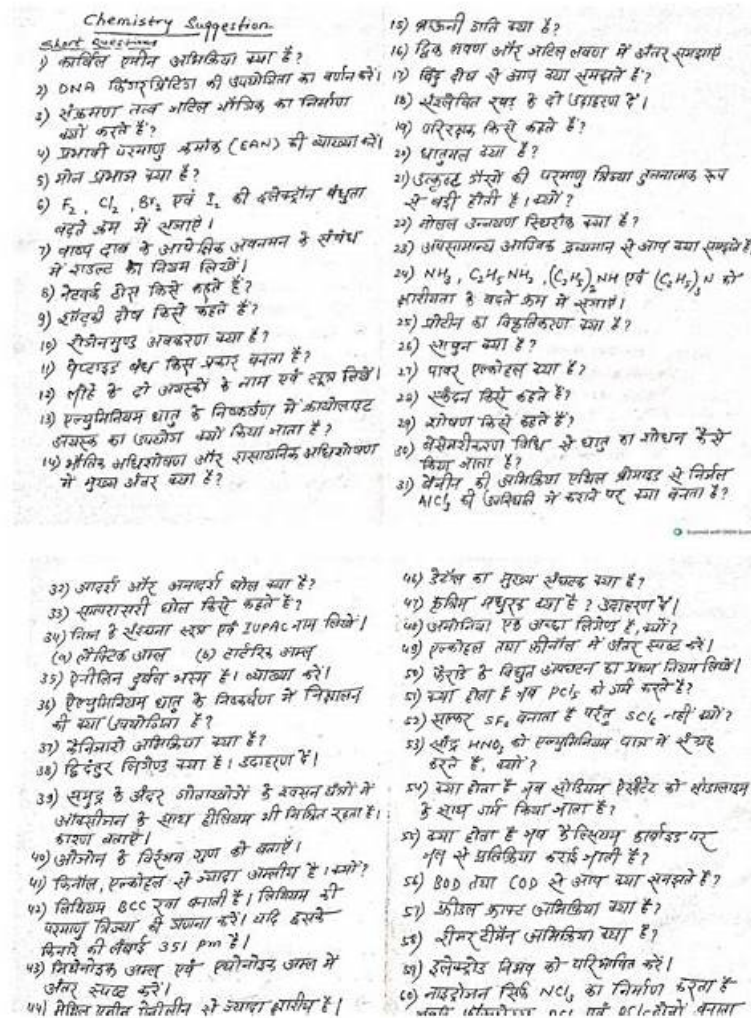 Chemistry Suggestion
Short Questions
1) कार्बिल एमीन अभिक्रिया क्या है?
2) DNA फिंगरप्रिंटिंग की उपयोगिता का वर्णन करें।
3) संक्रमण तत्व जटिल यौगिक का निर्माण
क्यों करते हैं?
4) प्रभावी परमाणु क्रमांक (EAN) की व्याख्या करें।
5) मोल प्रभाज क्या है?
6) F₂, Cl₂, Br₂ एवं I₂ की इलेक्ट्रॉन बंधुता
बढ़ते क्रम में सजाएं।
7) वाष्प दाब के आपेक्षिक अवनमन के संबंध
में राउल्ट का नियम लिखें।
8) नेटवर्क ठोस किसे कहते हैं?
9) शॉट्की दोष किसे कहते हैं?
10) रोजेनमुण्ड अवकरण क्या है?
11) पेप्टाइड बंध किस प्रकार बनता है?
12) लोहे के दो अयस्कों के नाम एवं सूत्र लिखें।
13) एल्युमिनियम धातु के निष्कर्षण में क्रायोलाइट
अयस्क का उपयोग क्यों किया जाता है?
14) भौतिक अधिशोषण और रासायनिक अधिशोषण
में मुख्य अंतर क्या है?
15) भर्जन क्या है?
16) द्विक लवण और जटिल लवण में अंतर समझाएं
17) बिंदु दोष से आप क्या समझते हैं?
18) संश्लेषित रबड़ के दो उदाहरण दें।
19) परिरक्षक किसे कहते हैं?
20) धातुमल क्या है?
21) उत्कृष्ट गैसों की परमाणु त्रिज्या तुलनात्मक रूप
से बड़ी होती है। क्यों?
22) मोलल उन्नयन स्थिरांक क्या है?
23) अपसामान्य आण्विक द्रव्यमान से आप क्या समझते हैं
24) NH₃, C₂H₅NH₂, (C₂H₅)₂NH एवं (C₂H₅)₃N को
क्षारीयता के बढ़ते क्रम में सजाएं।
25) प्रोटीन का विकृतिकरण क्या है?
26) साबुन क्या है?
27) पावर एल्कोहल क्या है?
28) स्कंदन किसे कहते हैं?
29) शोषण किसे कहते हैं?
30) बेसेमरीकरण विधि से धातु का शोधन कैसे
किया जाता है?
31) बेंजीन की अभिक्रिया एथिल ब्रोमाइड से निर्जल
AlCl₃ की उपस्थिति में कराने पर क्या बनता है?
32) आदर्श और अनादर्श घोल क्या है?
33) समपरासरी घोल किसे कहते हैं?
34) निम्न के संरचना सूत्र एवं IUPAC नाम लिखें।
(a) लैक्टिक अम्ल (b) टार्टरिक अम्ल
35) ऐनीलिन दुर्बल भस्म है। व्याख्या करें।
36) ऐल्युमिनियम धातु के निष्कर्षण में निक्षालन
की क्या उपयोगिता है?
37) कैनिजारो अभिक्रिया क्या है?
38) द्विदंतुर लिगेण्ड क्या है। उदाहरण दें।
39) समुद्र के अंदर गोताखोरों के श्वसन यंत्रों में
ऑक्सीजन के साथ हीलियम भी मिश्रित रहता है।
कारण बताएं।
40) ओजोन के विरंजन गुण को बताएं।
41) फिनॉल, एल्कोहल से ज्यादा अम्लीय है। क्यों?
42) लिथियम BCC रवा बनाती है। लिथियम की
परमाणु त्रिज्या की गणना करें। यदि इसके
किनारे की लंबाई 351 pm है।
43) मिथेनोइक अम्ल एवं एथेनोइक अम्ल में
अंतर स्पष्ट करें।
44) मेथिल एमीन ऐनीलीन से ज्यादा क्षारीय है।
46) डेटॉल का मुख्य संघटक क्या है?
47) कृत्रिम मधुरक क्या है? उदाहरण दें।
48) अमोनिया एक अच्छा लिगेण्ड है, क्यों?
49) एल्कोहल तथा फ़ीनॉल में अंतर स्पष्ट करें।
50) फैराडे के विद्युत अपघटन का प्रथम नियम लिखें।
51) क्या होता है जब PCl₅ को गर्म करते हैं?
52) सल्फर SF₆ बनाता है परंतु SCl₆ नहीं क्यों?
53) सांद्र HNO₃ को एल्युमिनियम पात्र में संग्रह
करते हैं, क्यों?
54) क्या होता है जब सोडियम ऐसीटेट को सोडालाइम
के साथ गर्म किया जाता है?
55) क्या होता है जब कैल्सियम कार्बाइड पर
जल से प्रतिक्रिया कराई जाती है?
56) BOD तथा COD से आप क्या समझते हैं?
57) फ्रीडल क्राफ्ट अभिक्रिया क्या है?
58) रीमर टीमैन अभिक्रिया क्या है?
59) इलेक्ट्रोड विभव को परिभाषित करें।
60) नाइट्रोजन सिर्फ NCl₃ का निर्माण करता है